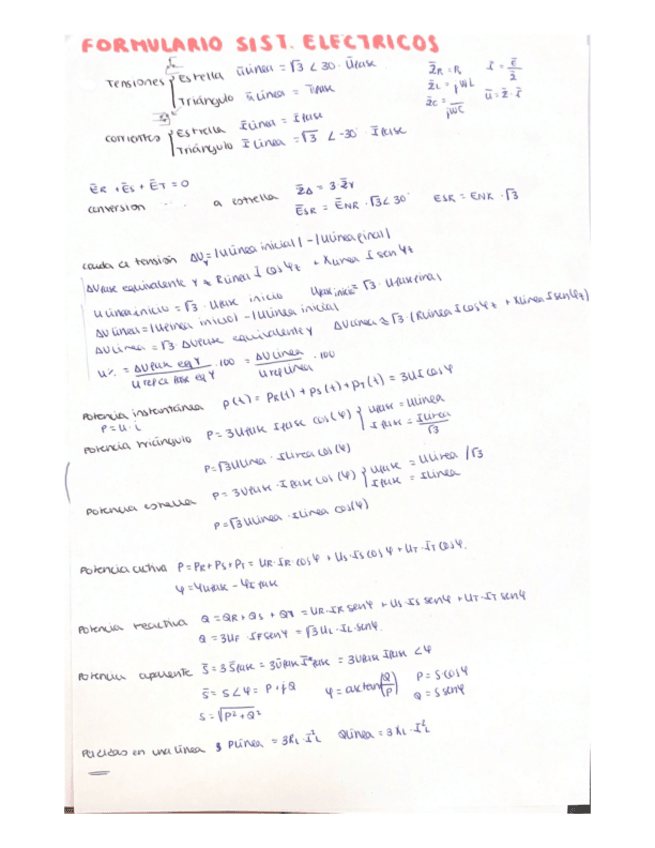 FORMULARIO SIST. ELECTRICOS
Tensiones { Estrella ūlinea = √3 ∠30 · Ūfase
Triángulo ūlinea = Ūfase
Z̄R = R, I = Ē/Z̄
Z̄L = jWL
ū = Z̄ · Ī
Z̄C = 1/jWC
corrientes { Estrella Īlinea = Īfase
Triángulo Īlinea = √3 ∠-30 · Īfase
ĒR + ĒS + ĒT = 0
conversion a estrella Z̄Δ = 3·Z̄Y
ĒSR = ĒNR · √3∠30 ESR = ENR · √3
caída de tensión ΔU = |Ulinea inicial| - |Ulinea final|
ΔUfase equivalente Y ≈ Rlinea I cosφz + Xlinea I senφz
Ulinea inicio = √3 · Ufase inicio
ΔUlinea = |Ulinea inicio| - |Ulinea inicial
ΔUlinea = √3 · ΔUfase equivalente Y ΔUlinea ≈ √3 · (Rlinea I cosφz + Xlinea I senφz)
u% = ΔUfase eq Y / U ref ca fase eq Y · 100 = ΔUlinea / U ref linea · 100
Potencia instantánea p(t) = PR(t) + PS(t) + PT(t) = 3UI cosφ
P = u · i
Potencia triángulo P = 3Ufase Ifase cos(φ) } Ufase = Ulinea
Ifase = Ilinea/√3
P = √3 Ulinea · Ilinea cos(φ)
Potencia estrella P = 3Ufase · Ifase cos(φ) } Ufase = Ulinea /√3
Ifase = Ilinea
P = √3 Ulinea · Ilinea cos(φ)
Potencia activa P = PR + PS + PT = UR · IR · cosφ + US · IS cosφ + UT · IT cosφ.
φ = φufase - φIfase
Potencia reactiva Q = QR + QS + QT = UR · IR senφ + US · IS senφ + UT · IT senφ
Q = 3UF · IF senφ = √3 UL · IL · senφ.
Potencia aparente S̄ = 3 S̄fase = 3Ūfase Ī*fase = 3Ufase Ifase ∠φ
S̄ = S∠φ = P + jQ φ = arctan(Q/P) P = S cosφ
Q = S senφ
S = √P² + Q²
Perdidas en una linea Plinea = 3RL · I²L Qlinea = 3XL · I²L